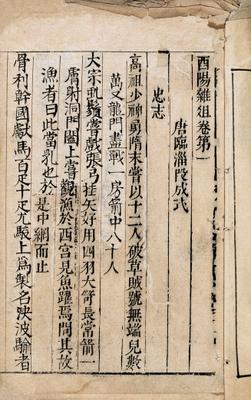 酉陽雜俎卷第一
唐臨淄段成式
忠志
高祖少神勇隋末嘗以十二人破草賊號無端兒數
萬又龍門盡戰一房箭中八十人
太宗虬鬚嘗戲張弓挂矢好用四羽大笴長常箭一
膚射洞門闔上嘗觀漁於西宮見魚躍焉問其故
漁者曰此當乳也於是中網而止
骨利幹國獻馬百疋十疋尤駿上為製名決波騟者